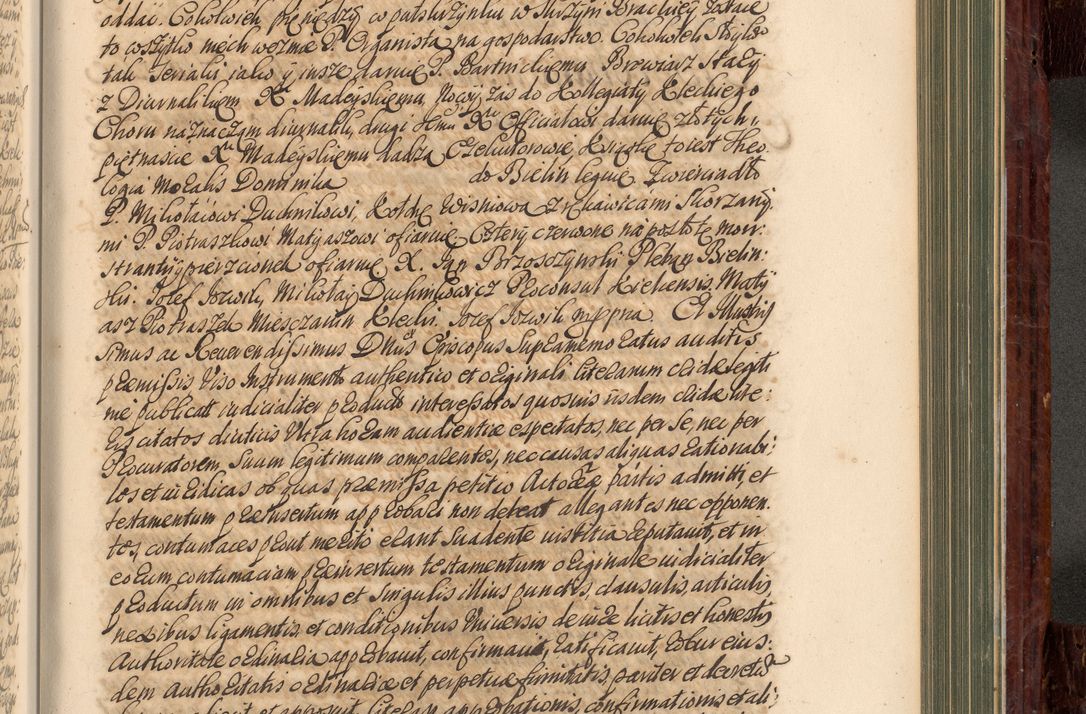 oddać. Cokolwiek pieniędzy w pulsturzynku w
to wszytko niech wezmie P. Organista na gospodarstwo.
tak y insze daruię P. Bartnickiemu Brewiarz Stary
z Diurnalikiem Xu Madeyskiemu, Nowy zas do Kollegiaty Kieckiego
Choru naznaczam diurnalik, drugi Xu Officiałowi daruię złotych
piętnascie Xu Madeyskiemu Exekutorowie Książkę to iest Theo
logia Moralis Dominika do Bielin leguię Zwierciadło
P. Mikołaiowi Duchnikowi, Wisniowa z rękawicami Skorzany
mi P. Piotraszkowi Matyaszowi ofiaruię Cztery czerwone na pozłotę mon:
strantÿ y pierzcionek ofiaruię X. Jan Brzoszczynski Pleban Bielin:
ski. Jozef Jozwik, Mikołaÿ Duchnikowicz Proconsul Kielcensis, Maty
asz Piotraszek Miesczanin Kiecki. Jozef Jozwik mppria. Et Illustris
simus ac Reuerendissimus Dnus Episcopus supramemoratus auditis
præmissis Viso Instrumento authentico et originali literarum cridæ legiti
me publicat iudicialiter producto interessatos quosuis iisdem cridæ lite:
ris citatos diutius Vltra horam audientiæ expectatos, nec per se, nec per
Procuratorem suum legitimum comparentes, nec causas aliquas rationabi:
les et iuridicas ob quas præmissa petitio Actoreæ partis admitti, et
testamentum præinsertum approbari non debeat allegantes nec opponen:
tes, contumaces prout merito erant suadente iustitia reputauit, et in
eorum contumaciam præinsertum testamentum originale iudicialiter
productum in omnibus et singulis illius punctis, clausulis, articulis,
nexibus ligamentis, et conditionibus Vniuersis de iure licitis et honestis
Authoritate ordinaria approbauit, confirmauit, ratificauit, robur eius:
dem authoritatis ordinariæ et perpetuæ firmitatis, pariter et decretū
et apposuit, literas approbationis, confirmationis et ali: